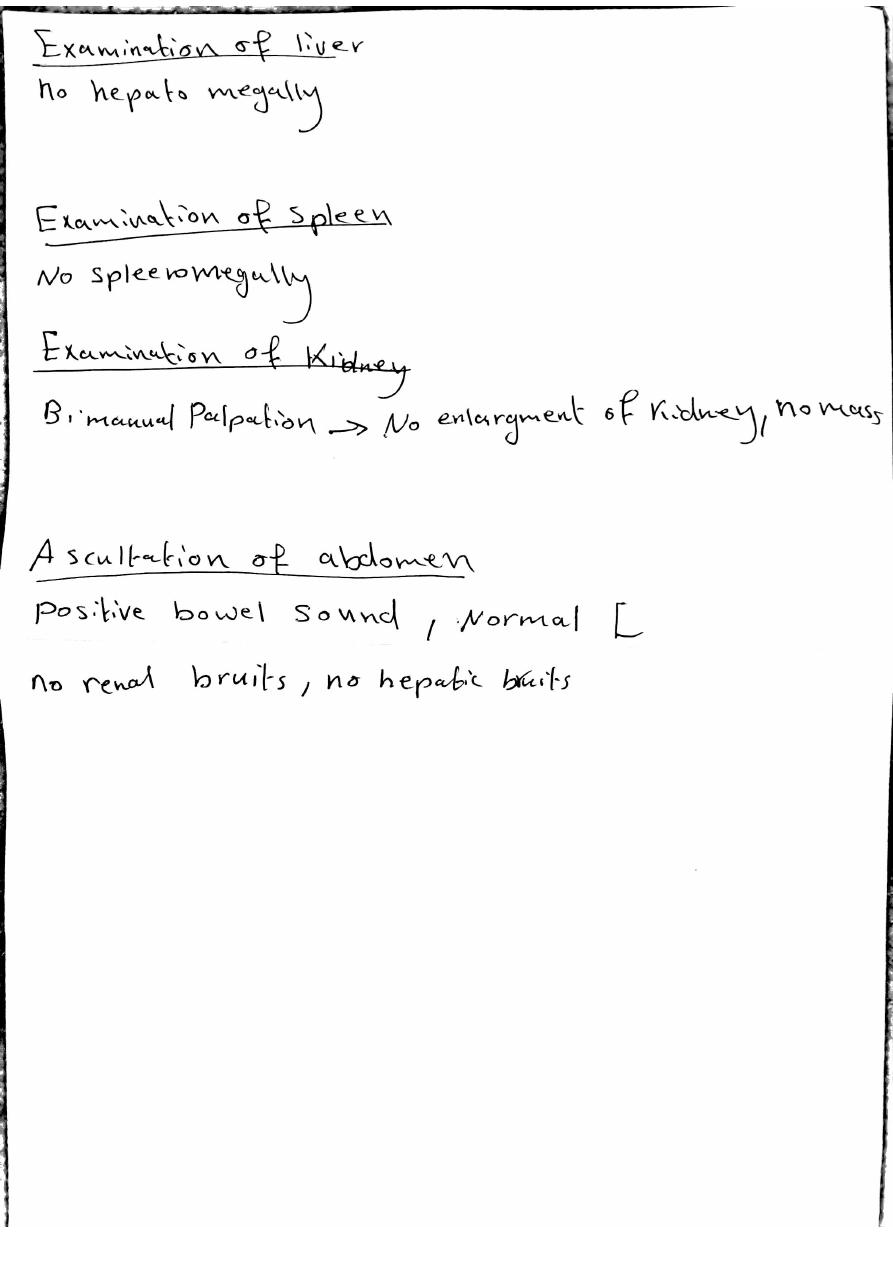 Examination of liver
no hepato megally
Examination of spleen
No spleenomegally
Examination of Kidney
Bimanual Palpation → No enlargment of kidney, no mass
Ascultation of abdomen
positive bowel sound, Normal [
no renal bruits, no hepatic bruits